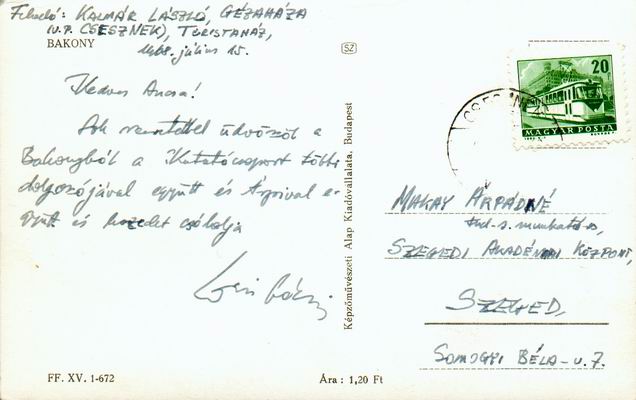 Feladó: KALMÁR LÁSZLÓ, GÉZAHÁZA
(U.P. CSESZNEK), TURISTAHÁZ,
BAKONY
SZ
1968. július 15.
Kedves Ancsa!
Sok szeretettel üdvözöl a
Bakonyból a Kutatócsoport többi
dolgozójával együtt és Árpival e-
gyütt és kezedet csókolja
20 f
MAGYAR POSTA
CSESZNEK
MAKAY ÁRPÁDNÉ
tud. s. munkatárs,
SZEGEDI AKADÉMIAI KÖZPONT,
SZEGED,
SOMOGYI BÉLA-u. 7.
Képzőművészeti Alap Kiadóvállalata, Budapest
FF. XV. 1-672
Ára: 1,20 Ft